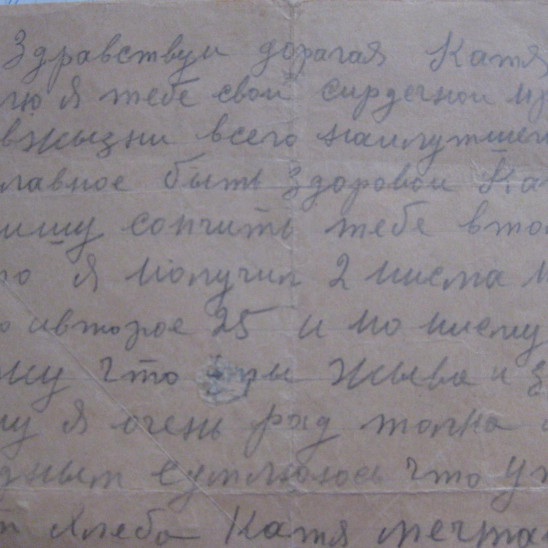 Здравствуи дорагая Катя
лю я тебе свои сирдечнои
вжызни всего наилутшег
лавное быть здоровои Ка
ишу сопчить тебе втом
ро я получил 2 писма
о автарое 25 и по писму
жу что ты жыва и з
му я очень рад толка
дным сумлююсь что у
т хлеба Катя мечта